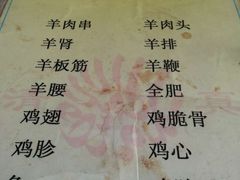 羊肉串 羊肉头
羊肾 羊排
羊板筋 羊鞭
羊腰 全肥
鸡翅 鸡脆骨
鸡胗 鸡心